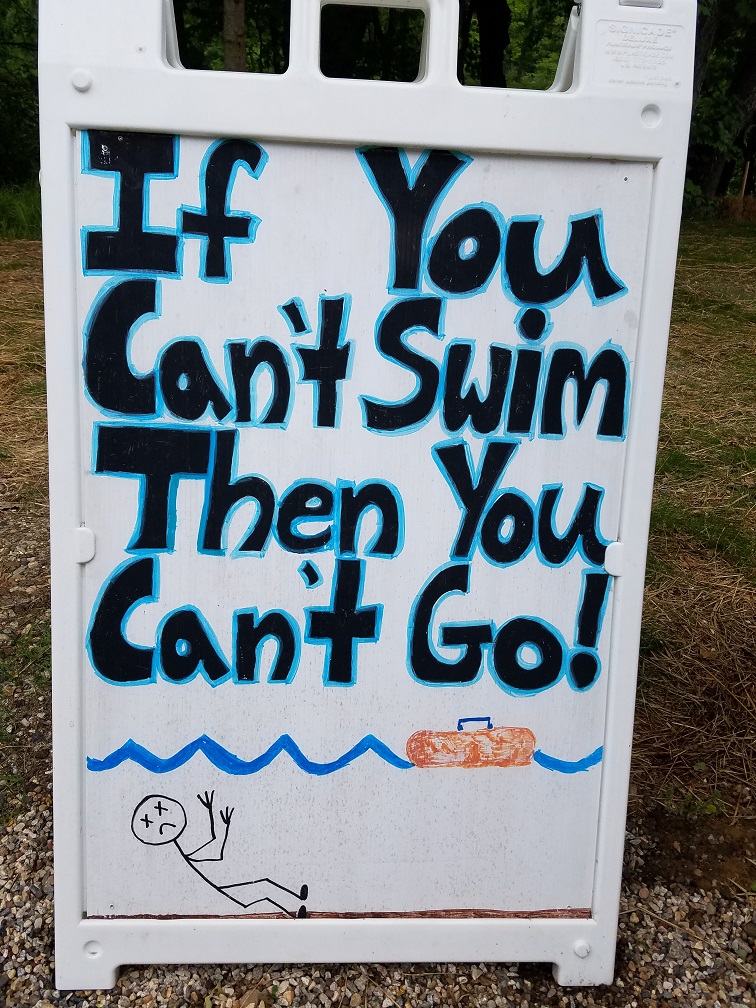 SIGNICADE®
If You
Can't Swim
Then You
Can't Go!